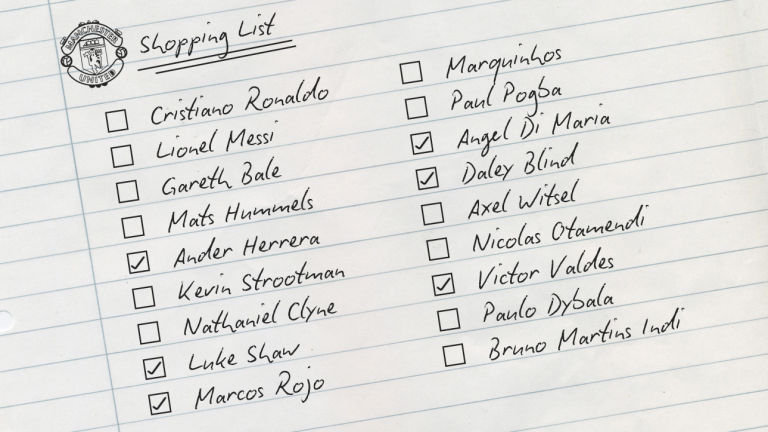 MANCHESTER
UNITED
Shopping List
Cristiano Ronaldo
Lionel Messi
Gareth Bale
Mats Hummels
Ander Herrera
Kevin Strootman
Nathaniel Clyne
Luke Shaw
Marcos Rojo
Marquinhos
Paul Pogba
Angel Di Maria
Daley Blind
Axel Witsel
Nicolas Otamendi
Victor Valdes
Paulo Dybala
Bruno Martins Indi